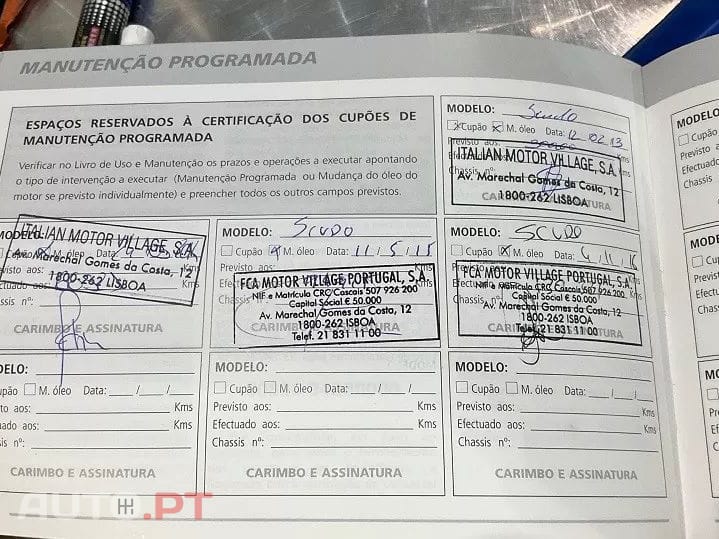 MANUTENÇÃO PROGRAMADA
ESPAÇOS RESERVADOS À CERTIFICAÇÃO DOS CUPÕES DE
MANUTENÇÃO PROGRAMADA
Verificar no Livro de Uso e Manutenção os prazos e operações a executar apontando
o tipo de intervenção a executar (Manutenção Programada ou Mudança do óleo do
motor se previsto individualmente) e preencher todos os outros campos previstos.
MODELO: Scudo
Cupão M. óleo Data: 12.02.13
Previsto aos: Kms
ITALIAN MOTOR VILLAGE, S.A.
Av. Marechal Gomes da Costa, 12
1800-262 LISBOA
MODELO
ITALIAN MOTOR VILLAGE, S.A.
Av. Marechal Gomes da Costa, 12
1800-262 LISBOA
Chassis nº:
CARIMBO E ASSINATURA
MODELO: SCUDO
Cupão M. óleo Data: 11/5/15
Previsto aos:
FCA MOTOR VILLAGE PORTUGAL, S.A.
NIF e Matrícula CRC/Cascais 507 926 200
Capital Social € 50.000
Av. Marechal Gomes da Costa, 12
1800-262 LISBOA
Telef. 21 831 11 00
MODELO: SCUDO
Cupão M. óleo Data: 4.11.16
Previsto aos:
FCA MOTOR VILLAGE PORTUGAL, S.A.
NIF e Matrícula CRC/Cascais 507 926 200
Capital Social € 50.000
Av. Marechal Gomes da Costa, 12
1800-262 LISBOA
Telef. 21 831 11 00
MODELO:
Cupão M. óleo Data: __/__/__
Previsto aos: Kms
Efectuado aos: Kms
Chassis nº:
CARIMBO E ASSINATURA
MODELO:
Cupão M. óleo Data: __/__/__
Previsto aos: Kms
Efectuado aos: Kms
Chassis nº:
CARIMBO E ASSINATURA
MODELO:
Cupão M. óleo Data: __/__/__
Previsto aos: Kms
Efectuado aos: Kms
Chassis nº:
CARIMBO E ASSINATURA
AUTO.PT